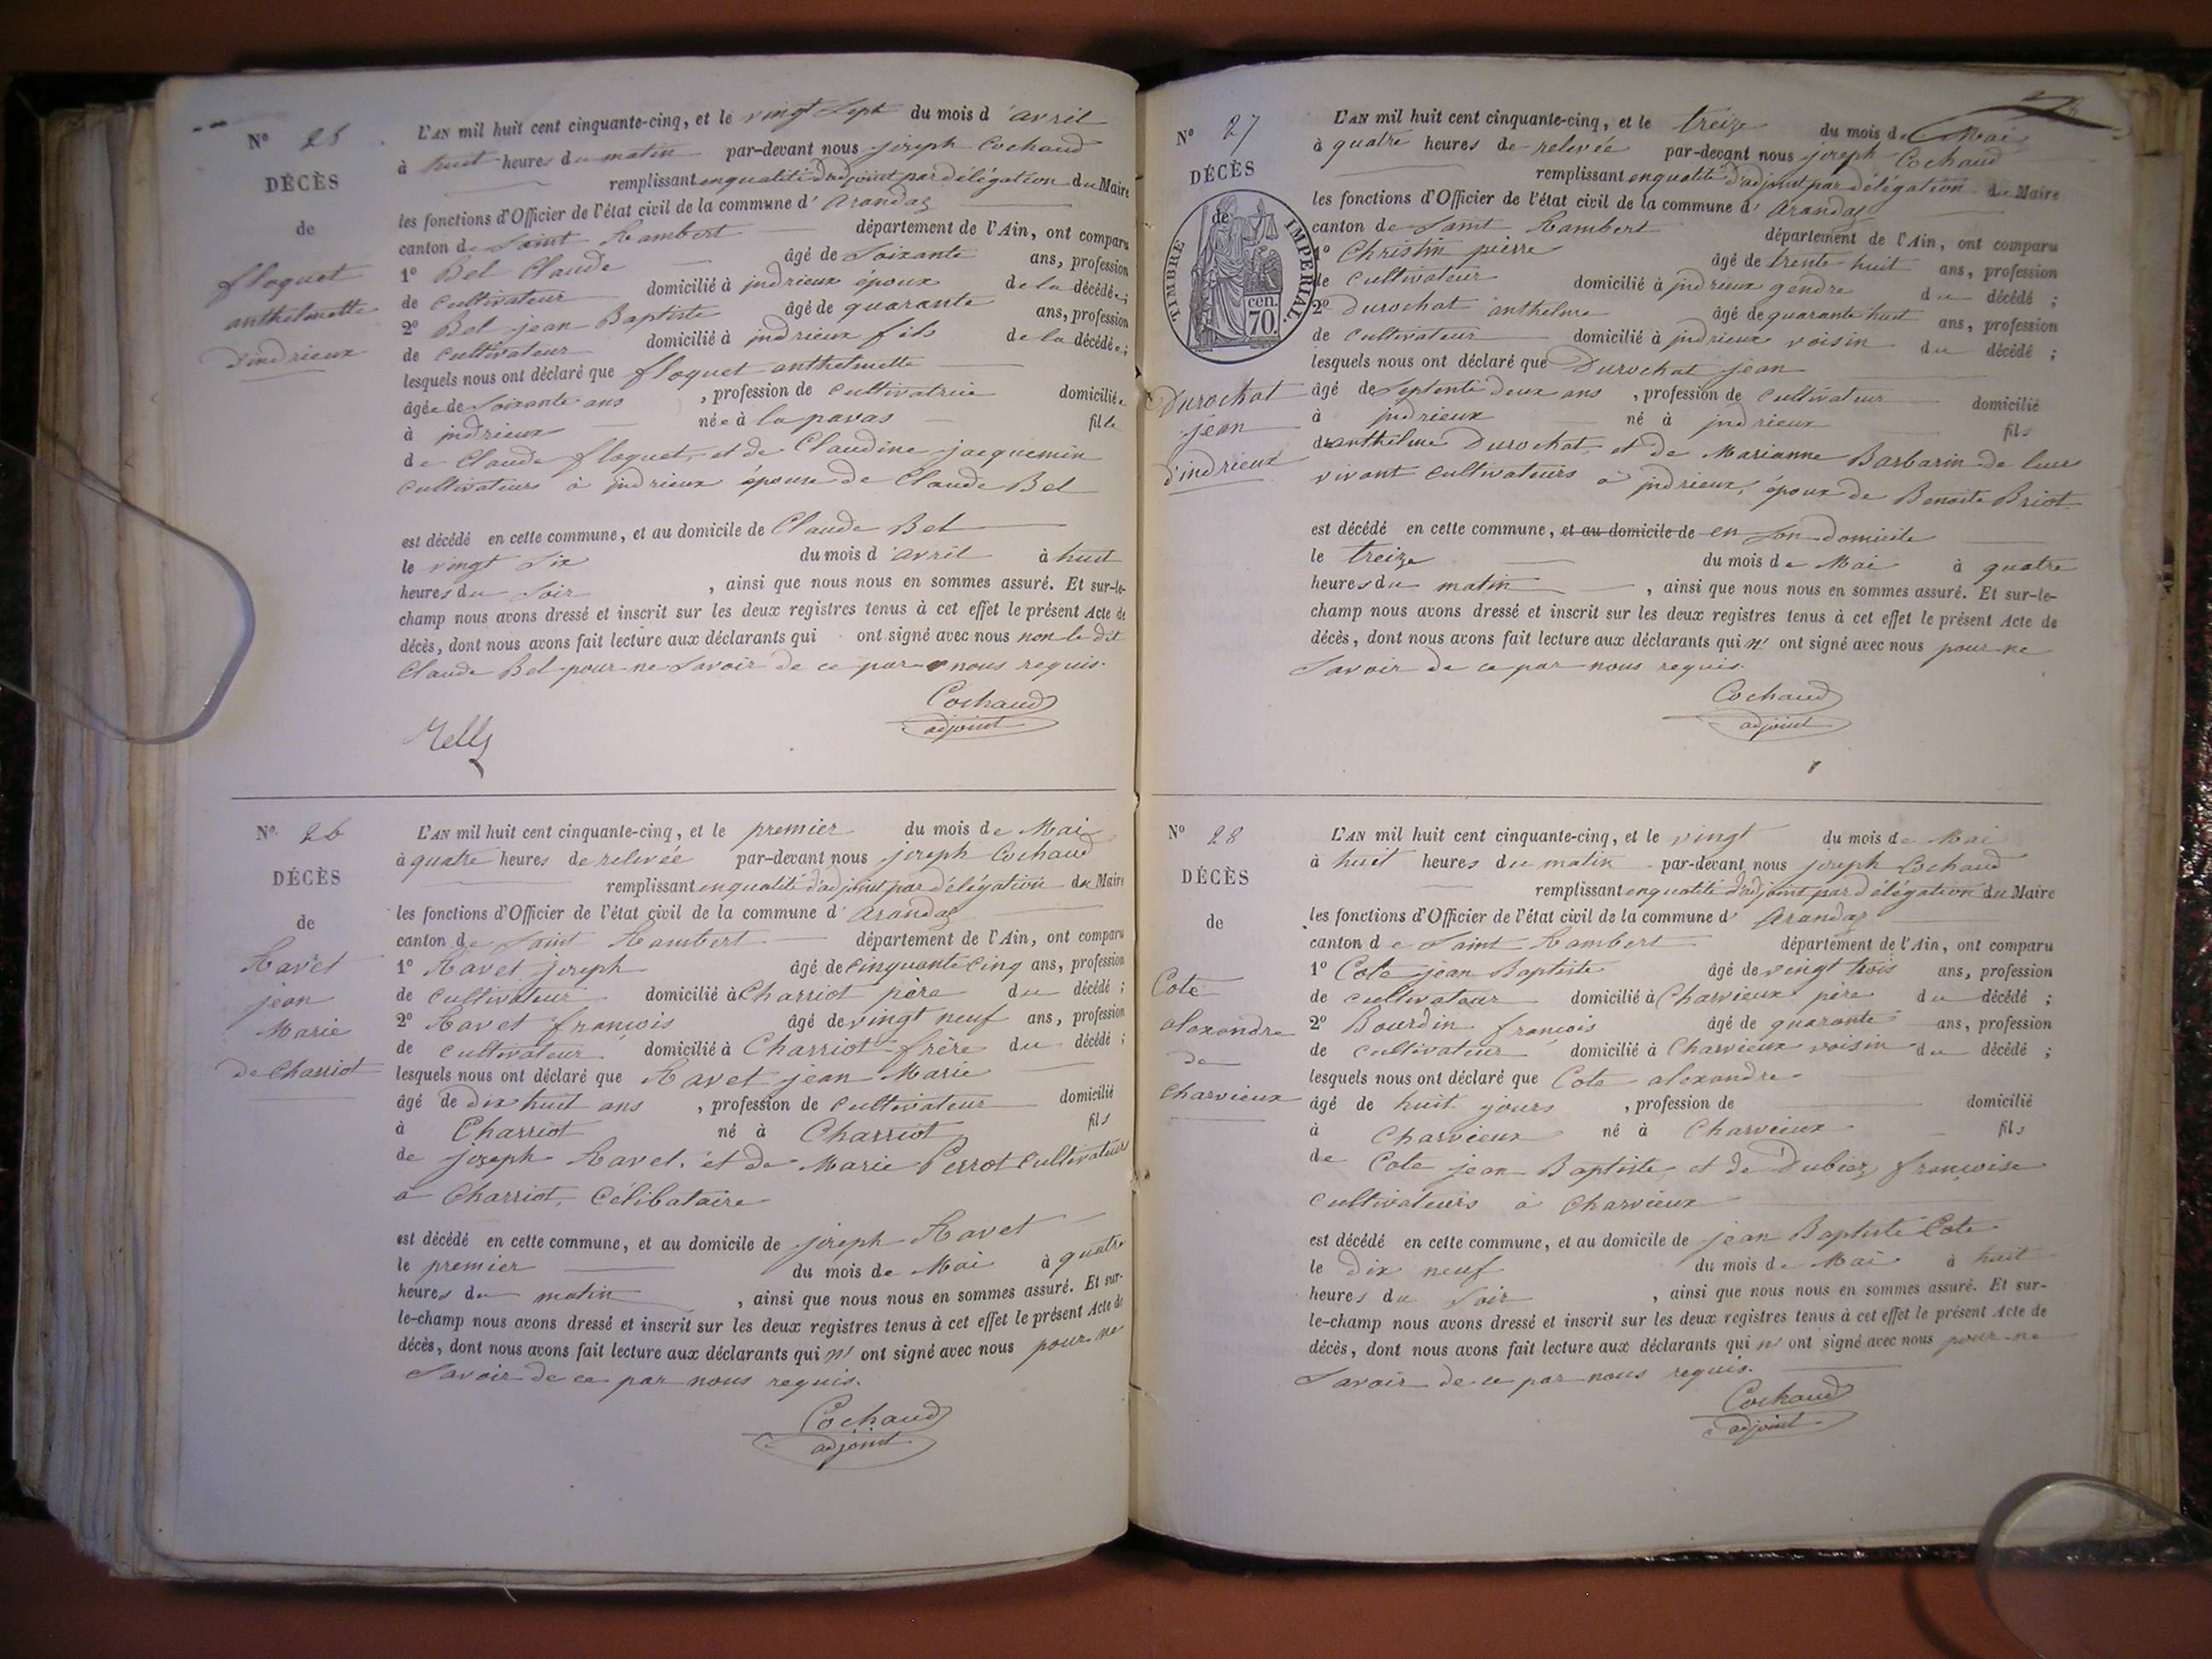 N° 25
DÉCÈS
de
floquet
anthelmette
d'indrieux
L'AN mil huit cent cinquante-cinq, et le vingt Sept du mois d'avril
à huit heures du matin par-devant nous joseph Cochaud
remplissant en qualité d'adjoint par délégation du Maire
les fonctions d'Officier de l'état civil de la commune d'arandas
canton de Saint Rambert département de l'Ain, ont comparu
1° Bel Claude âgé de Soixante ans, profession
de cultivateur domicilié à indrieux époux de la décédée;
2° Bel jean Baptiste âgé de quarante ans, profession
de cultivateur domicilié à indrieux fils de la décédée;
lesquels nous ont déclaré que floquet anthelmette
âgée de Soixante ans, profession de cultivatrice domiciliée
à indrieux née à la pavas fille
de Claude floquet, et de Claudine jacquemin
cultivateurs à indrieux épouse de Claude Bel
est décédé en cette commune, et au domicile de Claude Bel
le vingt Six du mois d'avril à huit
heures du Soir, ainsi que nous nous en sommes assuré. Et sur-le-
champ nous avons dressé et inscrit sur les deux registres tenus à cet effet le présent Acte de
décès, dont nous avons fait lecture aux déclarants qui ont signé avec nous non le dit
Claude Bel pour ne Savoir de ce par nous requis.
Cochaud
adjoint
N° 26
DÉCÈS
de
Ravet
jean
Marie
de Charriot
L'AN mil huit cent cinquante-cinq, et le premier du mois de Mai
à quatre heures de relevée par-devant nous joseph Cochaud
remplissant en qualité d'adjoint par délégation du Maire
les fonctions d'Officier de l'état civil de la commune d'arandas
canton de Saint Rambert département de l'Ain, ont comparu
1° Ravet joseph âgé de cinquante cinq ans, profession
de cultivateur domicilié à Charriot père du décédé;
2° Ravet françois âgé de vingt neuf ans, profession
de cultivateur domicilié à Charriot frère du décédé;
lesquels nous ont déclaré que Ravet jean Marie
âgé de dix huit ans, profession de cultivateur domicilié
à Charriot né à Charriot fils
de joseph Ravet, et de Marie Perrot cultivateurs
à Charriot, Célibataire
est décédé en cette commune, et au domicile de joseph Ravet
le premier du mois de Mai à quatre
heures du matin, ainsi que nous nous en sommes assuré. Et sur-
le-champ nous avons dressé et inscrit sur les deux registres tenus à cet effet le présent Acte de
décès, dont nous avons fait lecture aux déclarants qui n'ont signé avec nous pour ne
Savoir de ce par nous requis.
Cochaud
adjoint
N° 27
DÉCÈS
de
TIMBRE IMPERIAL
70 cen.
Durochat
jean
d'indrieux
L'AN mil huit cent cinquante-cinq, et le treize du mois de Mai
à quatre heures de relevée par-devant nous joseph Cochaud
remplissant en qualité d'adjoint par délégation du Maire
les fonctions d'Officier de l'état civil de la commune d'arandas
canton de Saint Rambert département de l'Ain, ont comparu
1° Christin pierre âgé de trente huit ans, profession
de cultivateur domicilié à indrieux gendre du décédé;
2° Durochat anthelme âgé de quarante huit ans, profession
de cultivateur domicilié à indrieux voisin du décédé;
lesquels nous ont déclaré que Durochat jean
âgé de Septente deux ans, profession de cultivateur domicilié
à indrieux né à indrieux fils
d'anthelme Durochat, et de Marianne Barbarin de leur
vivant cultivateurs à indrieux, époux de Benoite Briot
est décédé en cette commune, et au domicile de en Son domicile
le treize du mois de Mai à quatre
heures du matin, ainsi que nous nous en sommes assuré. Et sur-le-
champ nous avons dressé et inscrit sur les deux registres tenus à cet effet le présent Acte de
décès, dont nous avons fait lecture aux déclarants qui n'ont signé avec nous pour ne
Savoir de ce par nous requis.
Cochaud
adjoint
N° 28
DÉCÈS
de
Cote
alexandre
de
Charvieux
L'AN mil huit cent cinquante-cinq, et le vingt du mois de Mai
à huit heures du matin par-devant nous joseph Cochaud
remplissant en qualité d'adjoint par délégation du Maire
les fonctions d'Officier de l'état civil de la commune d'arandas
canton de Saint Rambert département de l'Ain, ont comparu
1° Cote jean Baptiste âgé de vingt trois ans, profession
de cultivateur domicilié à Charvieux père du décédé;
2° Bourdin françois âgé de quarante ans, profession
de cultivateur domicilié à Charvieux voisin du décédé;
lesquels nous ont déclaré que Cote alexandre
âgé de huit jours, profession de domicilié
à Charvieux né à Charvieux fils
de Cote jean Baptiste, et de Dubiez françoise
cultivateurs à Charvieux
est décédé en cette commune, et au domicile de jean Baptiste Cote
le dix neuf du mois de Mai à huit
heures du Soir, ainsi que nous nous en sommes assuré. Et sur-
le-champ nous avons dressé et inscrit sur les deux registres tenus à cet effet le présent Acte de
décès, dont nous avons fait lecture aux déclarants qui n'ont signé avec nous pour ne
Savoir de ce par nous requis.
Cochaud
adjoint